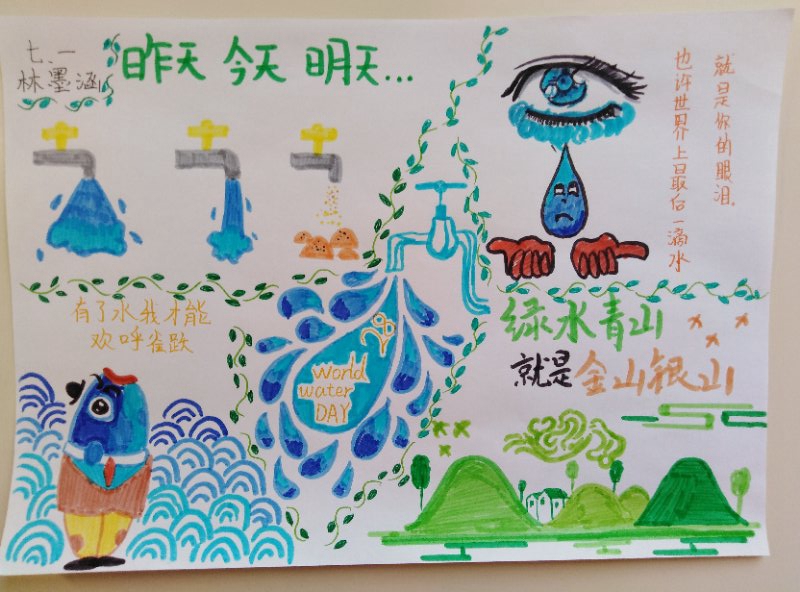 七、一
林墨涵
昨天 今天 明天...
也许世界上最后一滴水
就是你的眼泪.
有了水我才能
欢呼雀跃
world
water
DAY
绿水青山
就是金山银山